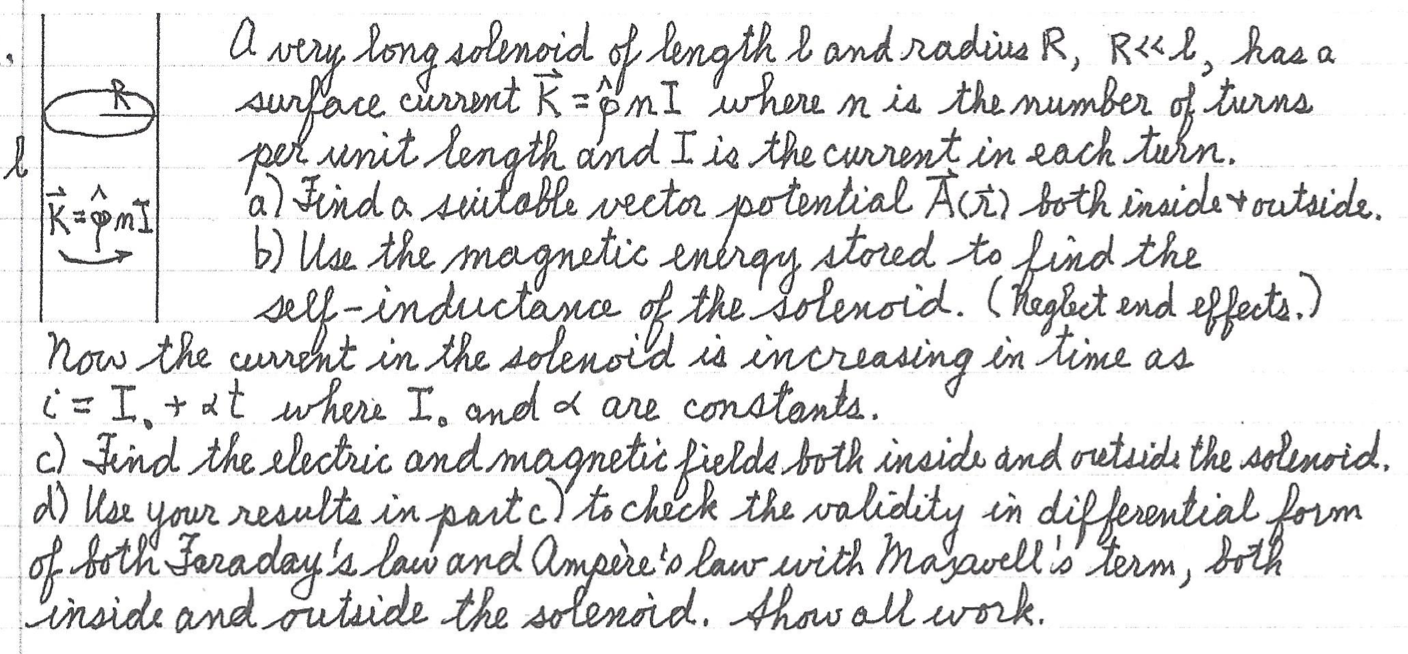 A very long solenoid of length l and radius R, R<<l, has a
R
surface current K⃗ = φ̂ n I where n is the number of turns
per unit length and I is the current in each turn.
l
K⃗ = φ̂ n I
a) Find a suitable vector potential A⃗(r⃗) both inside & outside.
b) Use the magnetic energy stored to find the
self-inductance of the solenoid. (Neglect end effects.)
Now the current in the solenoid is increasing in time as
i = I₀ + αt where I₀ and α are constants.
c) Find the electric and magnetic fields both inside and outside the solenoid.
d) Use your results in part c) to check the validity in differential form
of both Faraday's law and Ampère's law with Maxwell's term, both
inside and outside the solenoid. Show all work.